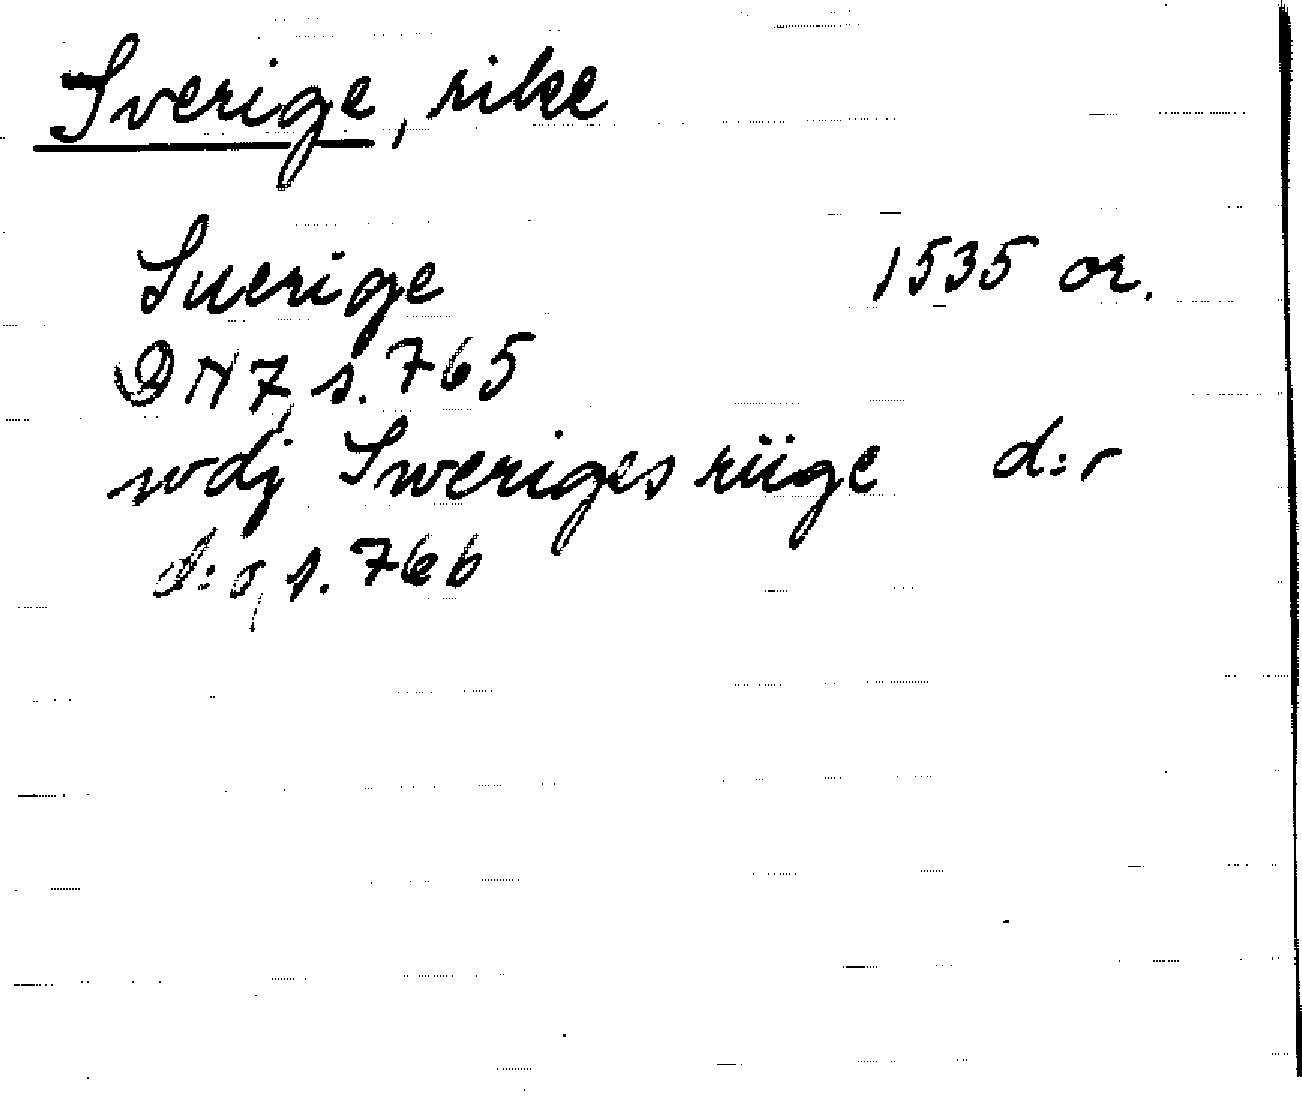 Sverige, rike
Suerige 1535 or.
DN 7, s. 765
wdj Sweriges riige d:r
d:o, s. 766